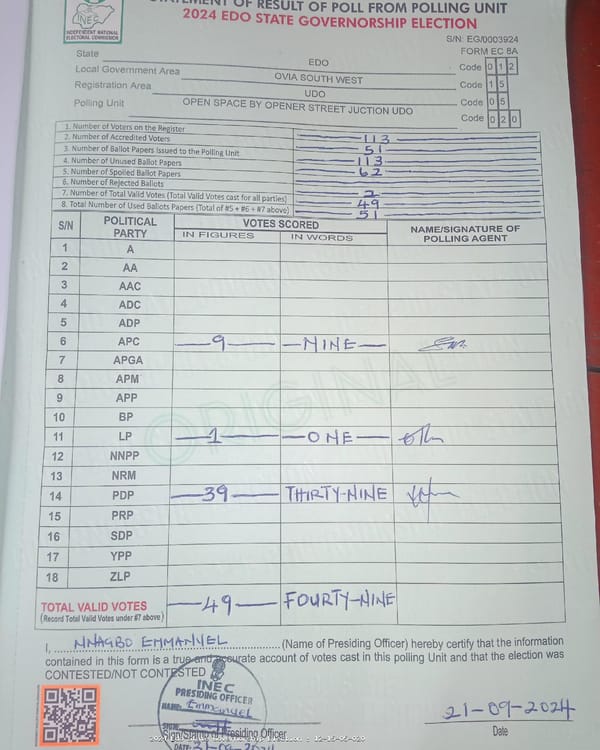 STATEMENT OF RESULT OF POLL FROM POLLING UNIT
2024 EDO STATE GOVERNORSHIP ELECTION
INEC
INDEPENDENT NATIONAL
ELECTORAL COMMISSION
S/N: EG/0003924
FORM EC 8A
State EDO Code 0 1 2
Local Government Area OVIA SOUTH WEST Code 1 5
Registration Area UDO Code 0 5
Polling Unit OPEN SPACE BY OPENER STREET JUCTION UDO Code 0 2 0
1. Number of Voters on the Register 113
2. Number of Accredited Voters 51
3. Number of Ballot Papers Issued to the Polling Unit 113
4. Number of Unused Ballot Papers 62
5. Number of Spoiled Ballot Papers
6. Number of Rejected Ballots 2
7. Number of Total Valid Votes (Total Valid Votes cast for all parties) 49
8. Total Number of Used Ballots Papers (Total of #5 + #6 + #7 above) 51
S/N POLITICAL PARTY VOTES SCORED NAME/SIGNATURE OF POLLING AGENT
IN FIGURES IN WORDS
1 A
2 AA
3 AAC
4 ADC
5 ADP
6 APC 9 NINE
7 APGA
8 APM
9 APP
10 BP
11 LP 1 ONE
12 NNPP
13 NRM
14 PDP 39 THIRTY-NINE
15 PRP
16 SDP
17 YPP
18 ZLP
ORIGINAL
TOTAL VALID VOTES 49 FOURTY-NINE
(Record Total Valid Votes under #7 above)
I, NNAGBO EMMANUEL (Name of Presiding Officer) hereby certify that the information
contained in this form is a true and accurate account of votes cast in this polling Unit and that the election was
CONTESTED/NOT CONTESTED
INEC
PRESIDING OFFICER
NAME: Emmanuel
SIGN:
Sign/Stamp of Presiding Officer
DATE: 21-09-2024
21-09-2024
Date